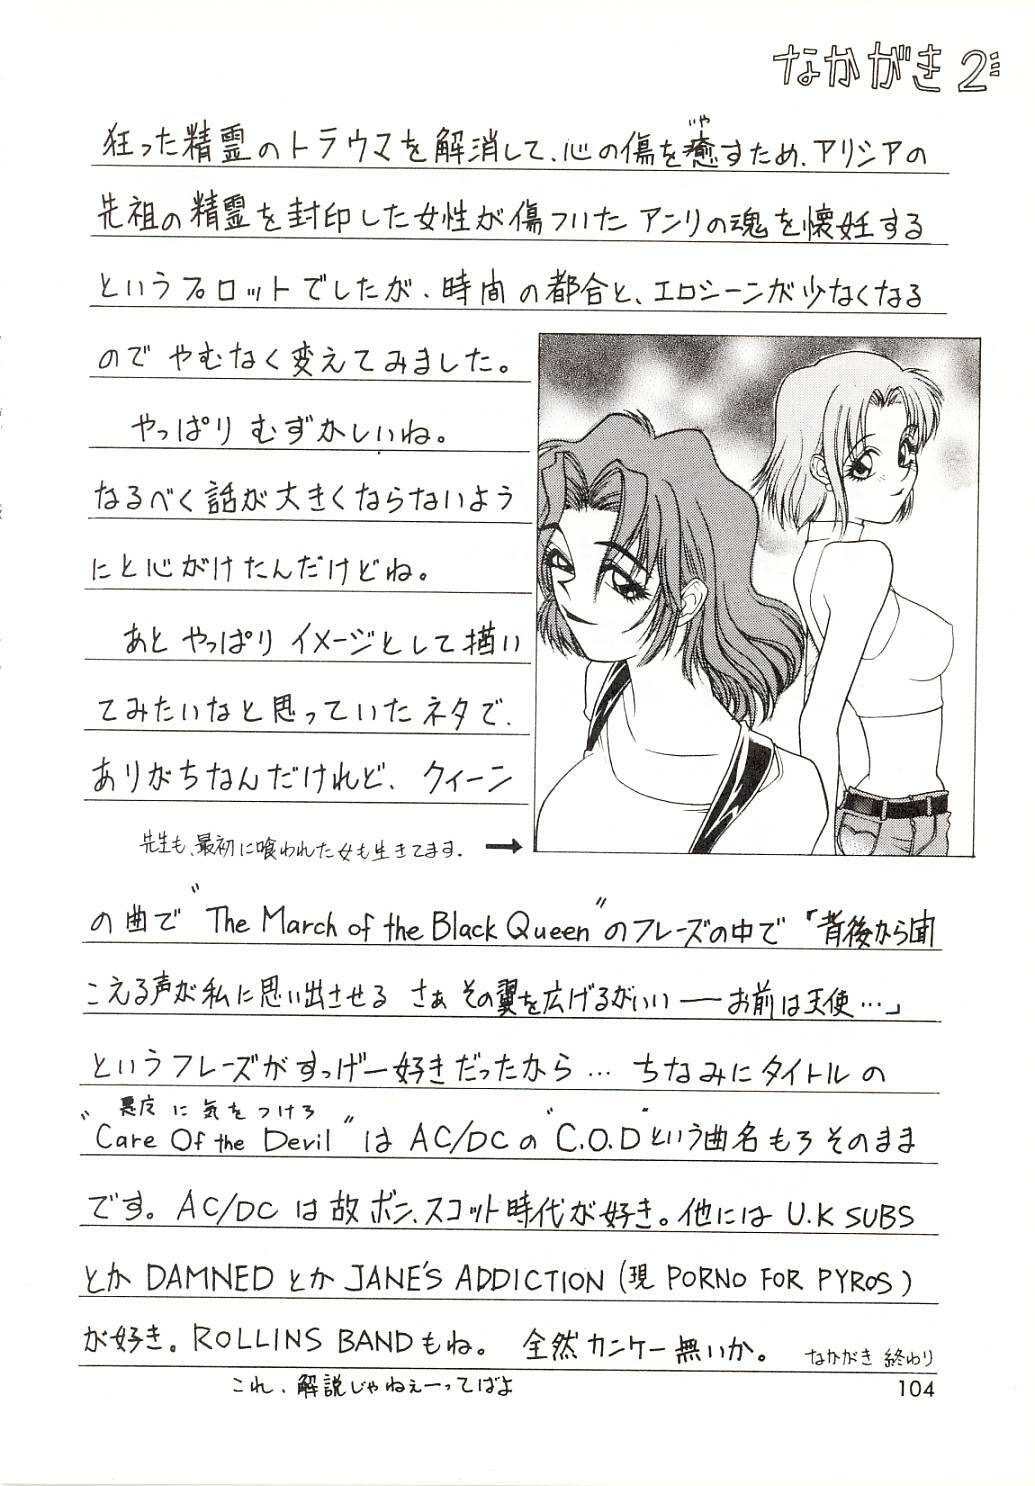 なかがき2
狂った精霊のトラウマを解消して、心の傷を癒すため、アリシアの
いや
先祖の精霊を封印した女性が傷ついたアンリの魂を懐妊する
というプロットでしたが、時間の都合と、エロシーンが少なくなる
のでやむなく変えてみました。
やっぱりむずかしいね。
なるべく話が大きくならないよう
にと心がけたんだけどね。
あとやっぱりイメージとして描い
てみたいなと思っていたネタで、
ありがちなんだけれど、クィーン
先生も、最初に喰われた女も生きてます. →
の曲で"The March of the Black Queen"のフレーズの中で「背後から聞
こえる声が私に思い出させる さぁ その翼を広げるがいい——お前は天使…」
というフレーズがすっげー好きだったから… ちなみにタイトルの
悪魔に気をつけろ
"Care Of the Devil"は AC/DCの"C.O.D"という曲名もろそのまま
です。AC/DCは故ボン.スコット時代が好き。他には U.K SUBS
とか DAMNED とか JANE'S ADDICTION (現 PORNO FOR PYROS)
が好き。ROLLINS BANDもね。 全然カンケー無いか。 なかがき 終わり
これ、解説じゃねぇーってばよ
104